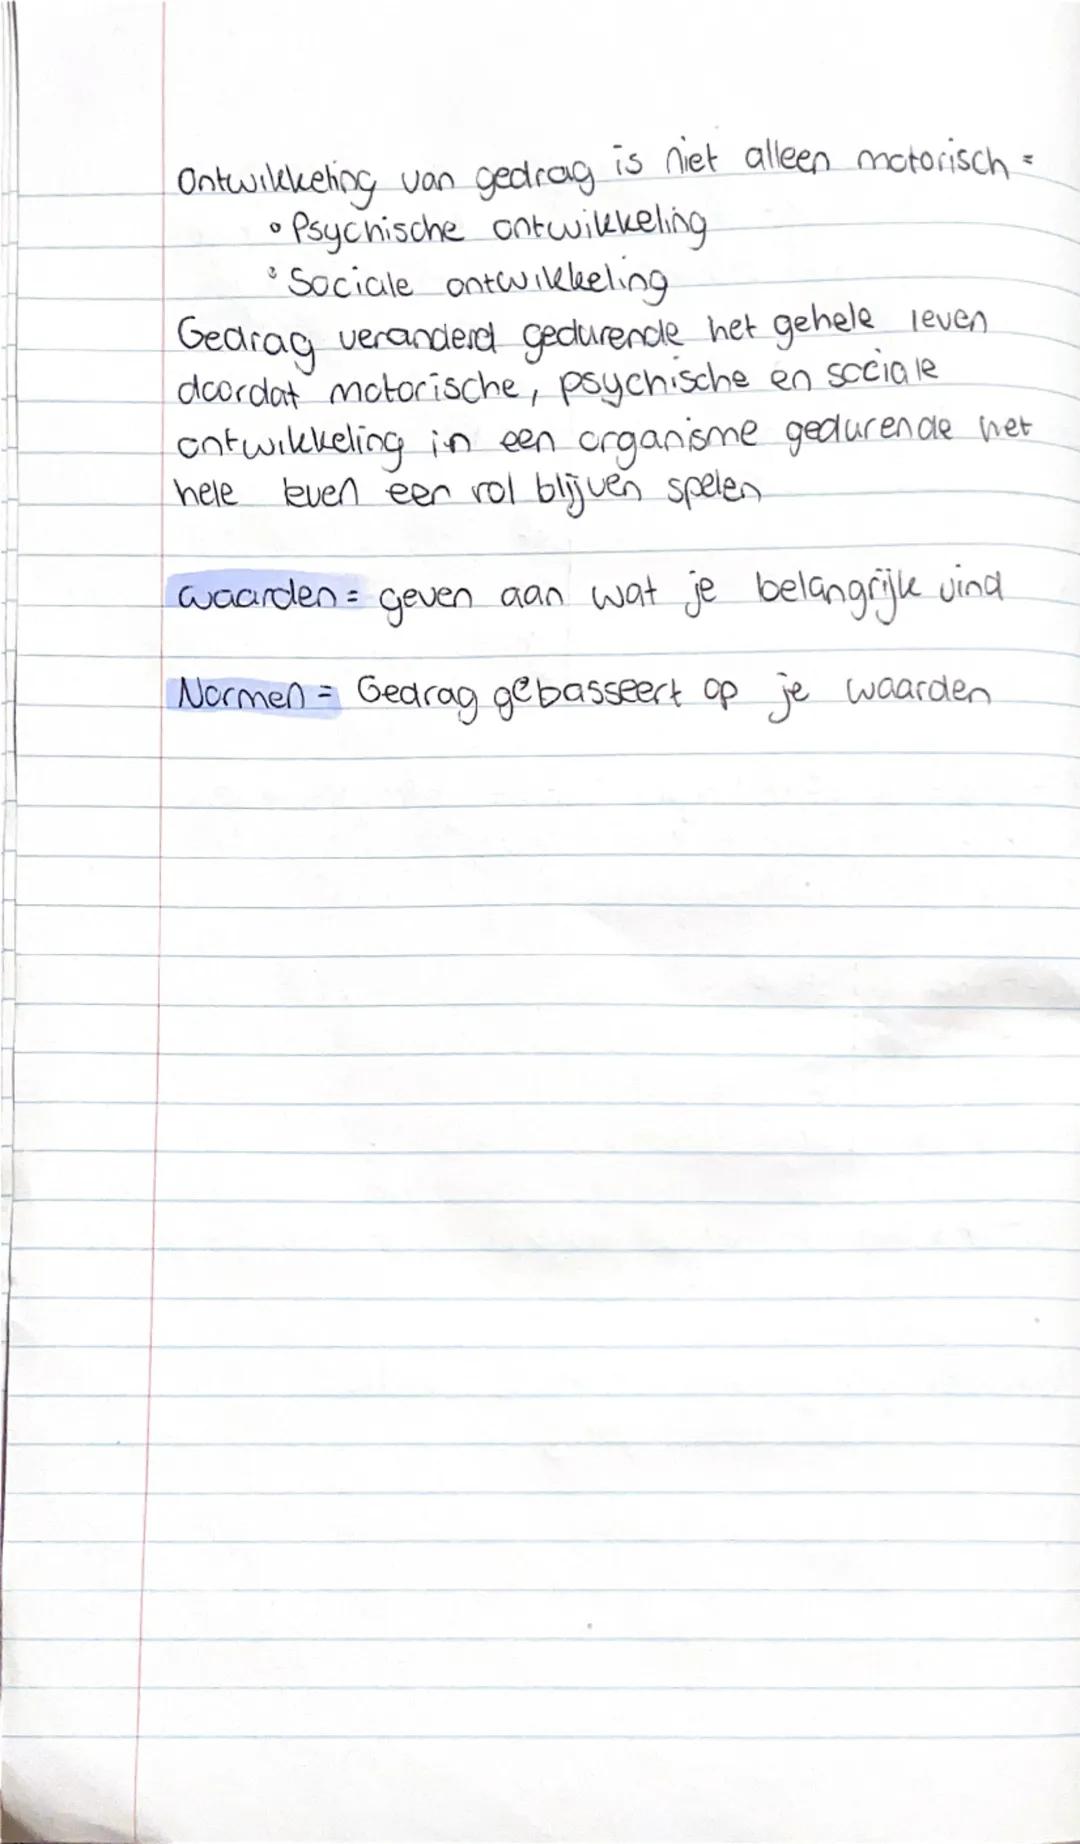 Ontwikkeling van gedrag is niet alleen motorisch =
◦ Psychische ontwikkeling
◦ Sociale ontwikkeling
Gedrag veranderd gedurende het gehele leven
doordat motorische, psychische en sociale
ontwikkeling in een organisme gedurende het
hele leven een rol blijven spelen
waarden = geven aan wat je belangrijk vind
Normen = Gedrag gebasseert op je waarden